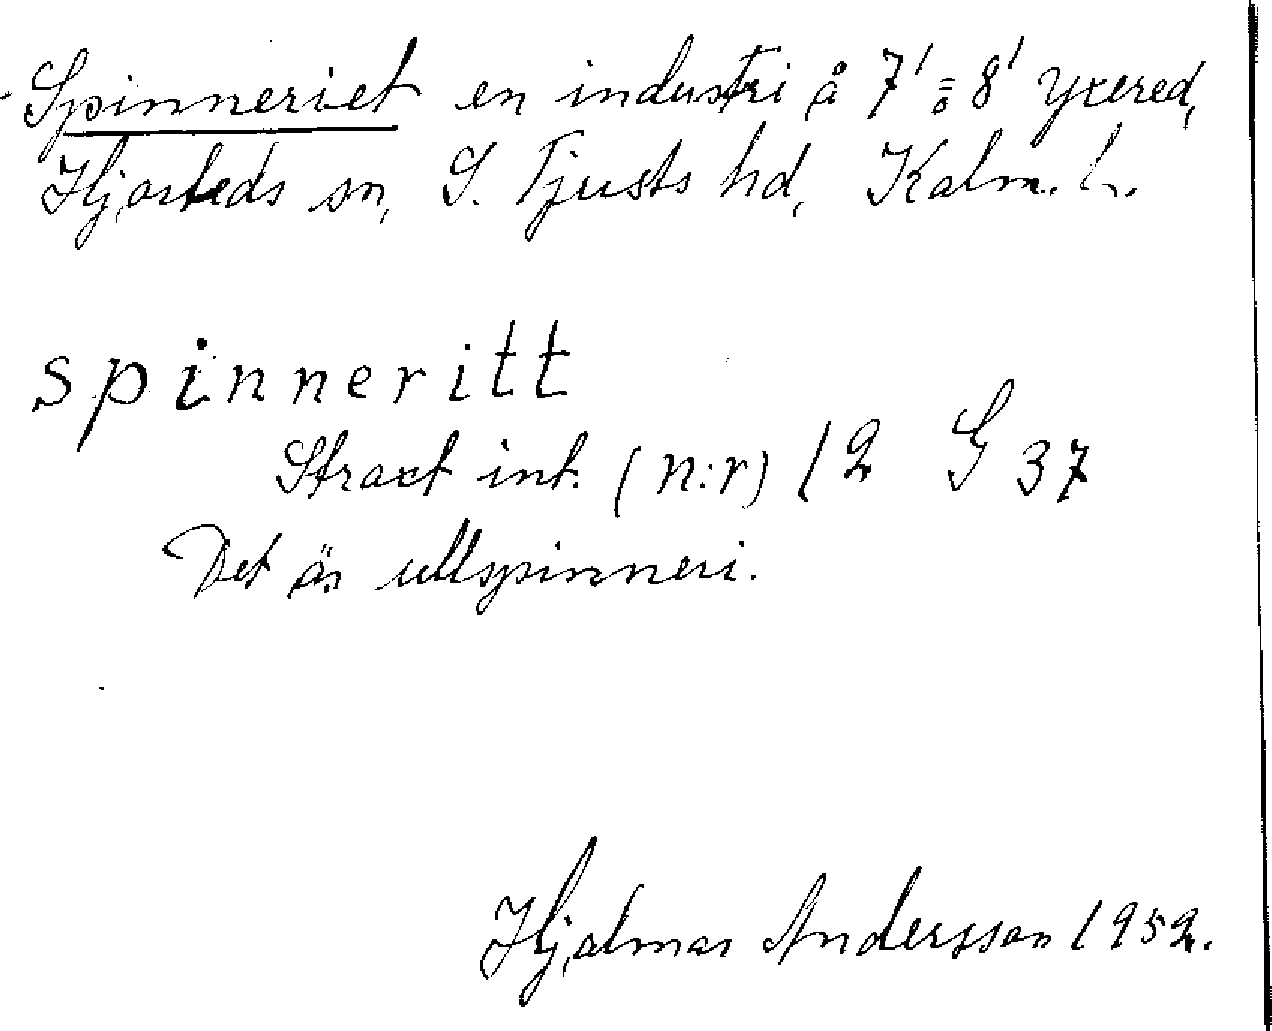 Spinneriet en industri å 7' o 8' Yxered,
Hjorteds sn, S. Tjusts hd, Kalm. l.
spinneritt
Straxt int. (n:r) 12 G 37
Det är ullspinneri.
Hjalmar Andersson 1952.